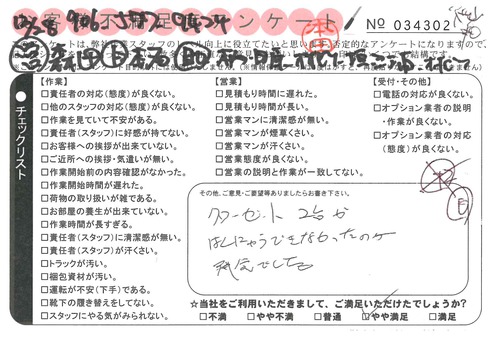 お客様不満足度アンケート
No 034302
本アンケートは、弊社営業スタッフのレベル向上に役立てたいと思います。否定的なアンケートになりますので、
チェックリスト
【作業】
□責任者の対応(態度)が良くない。
□他のスタッフの対応が良くない。
□作業を見ていて不安がある。
□責任者(スタッフ)に好感が持てない。
□お客様への挨拶が出来ていない。
□ご近所への挨拶・気遣いが無い。
□作業開始前の内容確認がなかった。
□作業開始時間が遅れた。
□荷物の取り扱いが雑である。
□お部屋の養生が出来ていない。
□作業時間が長すぎる。
□責任者(スタッフ)に清潔感が無い。
□責任者(スタッフ)が汗くさい。
□トラックが汚い。
□梱包資材が汚い。
□運転が不安(下手)である。
□靴下の履き替えをしてない。
□スタッフにやる気がみられない。
【営業】
□見積もり時間に遅れた。
□見積もり時間が長い。
□営業マンに清潔感が無い。
□営業マンが煙草くさい。
□営業マンが汗くさい。
□営業態度が良くない。
□営業の説明と作業が一致してない。
【受付・その他】
□電話の対応が良くない。
□オプション業者の説明
・作業が良くない。
□オプション業者の対応
(態度)が良くない。
その他、ご意見・ご要望等ありましたらお書き下さい。
クローゼット 2台が
はんにゅうできなかったのが
残念でした
☆当社をご利用いただきまして、ご満足いただけたでしょうか?
□不満 □やや不満 □普通 □やや満足 □満足